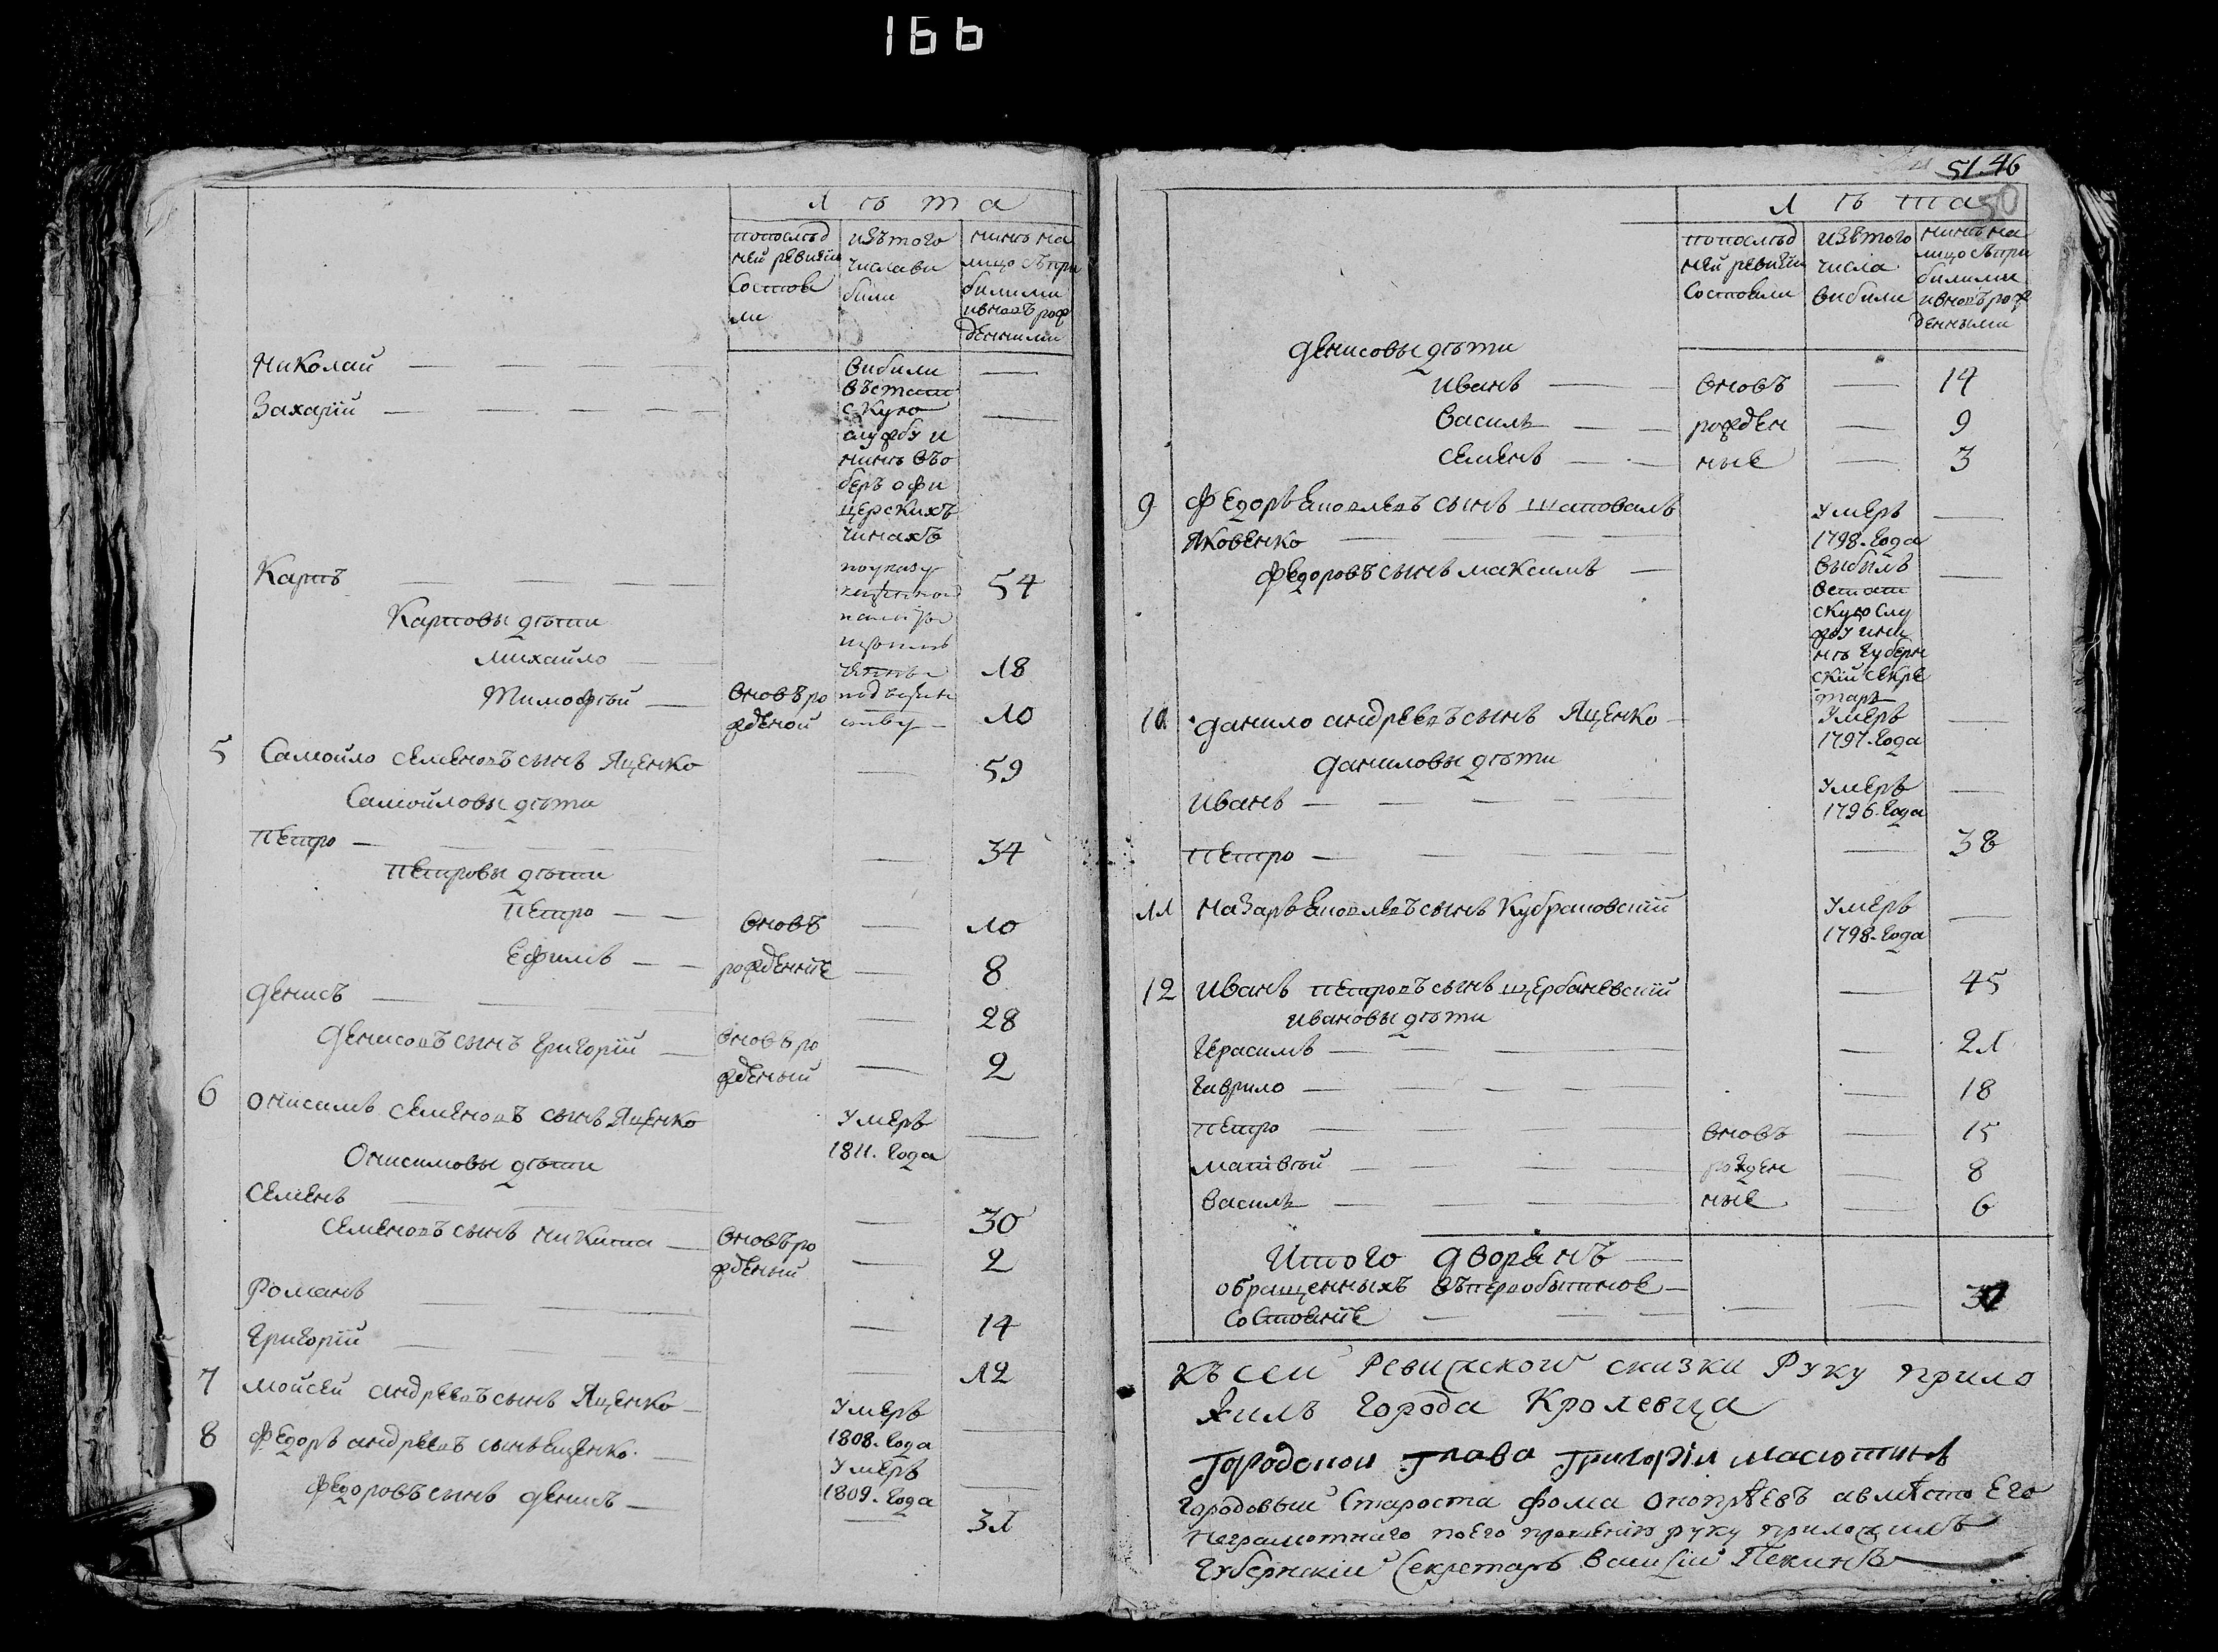 166
лѣта
попослѣд изътого нинѣ на
ней ревизіи числави лицо съпри
Состоя били билими
ли ивновърож
денними
Николай — вибили —
въстат
Захарій — скую —
службу и
нинѣ въо
беръ офи
церскихъ
чинахъ
Карпъ — 54
Карповы дѣти
Михайло — 18
Тимофѣй — вновъро
жденой 10
5 Самойло Семеновъ сынъ Яценко — 59
Самойловы дѣти
Петро — — 34
Петровы дѣти
Петро — вновъ — 10
Ефимъ — рожденніе — 8
Денисъ — — 28
Денисовъ сынъ Григорій — вновъро
жденый — 2
6 Онисимъ Семеновъ сынъ Яценко Умеръ —
1811. Года
Онисимовы дѣти
Семенъ — — 30
Семеновъ сынъ Никита — вновъро
жденый — 2
Романъ — — 14
Григорій — — 12
7 Мойсей Андреевъ сынъ Яценко — Умеръ —
1808. Года
8 Федоръ Андреевъ сынъ Еценко. — Умеръ —
1809. Года
Федоровъ сынъ Денисъ — — 31
51.46
50
лѣта
попослѣд изътого нинѣ на
ней ревизіи числа лицо съпри
Состояли вибили билими
ивновърож
денными
Денисовы дѣти
Иванъ — вновъ — 14
Василь — рожден — 9
Семенъ — ные — 3
9 Федоръ Яковлевъ сынъ Шаповалъ Умеръ —
Яковенко — 1798. Года
Федоровъ сынъ Максимъ — выбылъ —
встат
скую слу
жбу ини
нѣ Губерн
скій секре
тарь
10 Данило Андреевъ сынъ Яценко — Умеръ —
1797. Года
Даниловы дѣти
Иванъ — Умеръ —
1796. Года
Петро — — 38
11 Назаръ Яковлевъ сынъ Кубрановскій Умеръ —
1798. Года
12 Иванъ Петровъ сынъ Щербаневскій — 45
Ивановы дѣти
Герасимъ — — 21
Гаврило — — 18
Петро — вновъ — 15
Матвѣй — рожден — 8
Василь — ные — 6
Итого дворянъ —
обращенныхъ въпервобытное —
Состояніе — — —
Къ сей Ревизской сказки Руку прило
жилъ Города Кролевца
Городской Глава Григорій Масютинъ
Городовый Староста Фома Онопрѣевъ авмѣсто Его
Неграмотнаго поего прошенію руку приложилъ
Губернскій Секретарь Василій Пекинъ